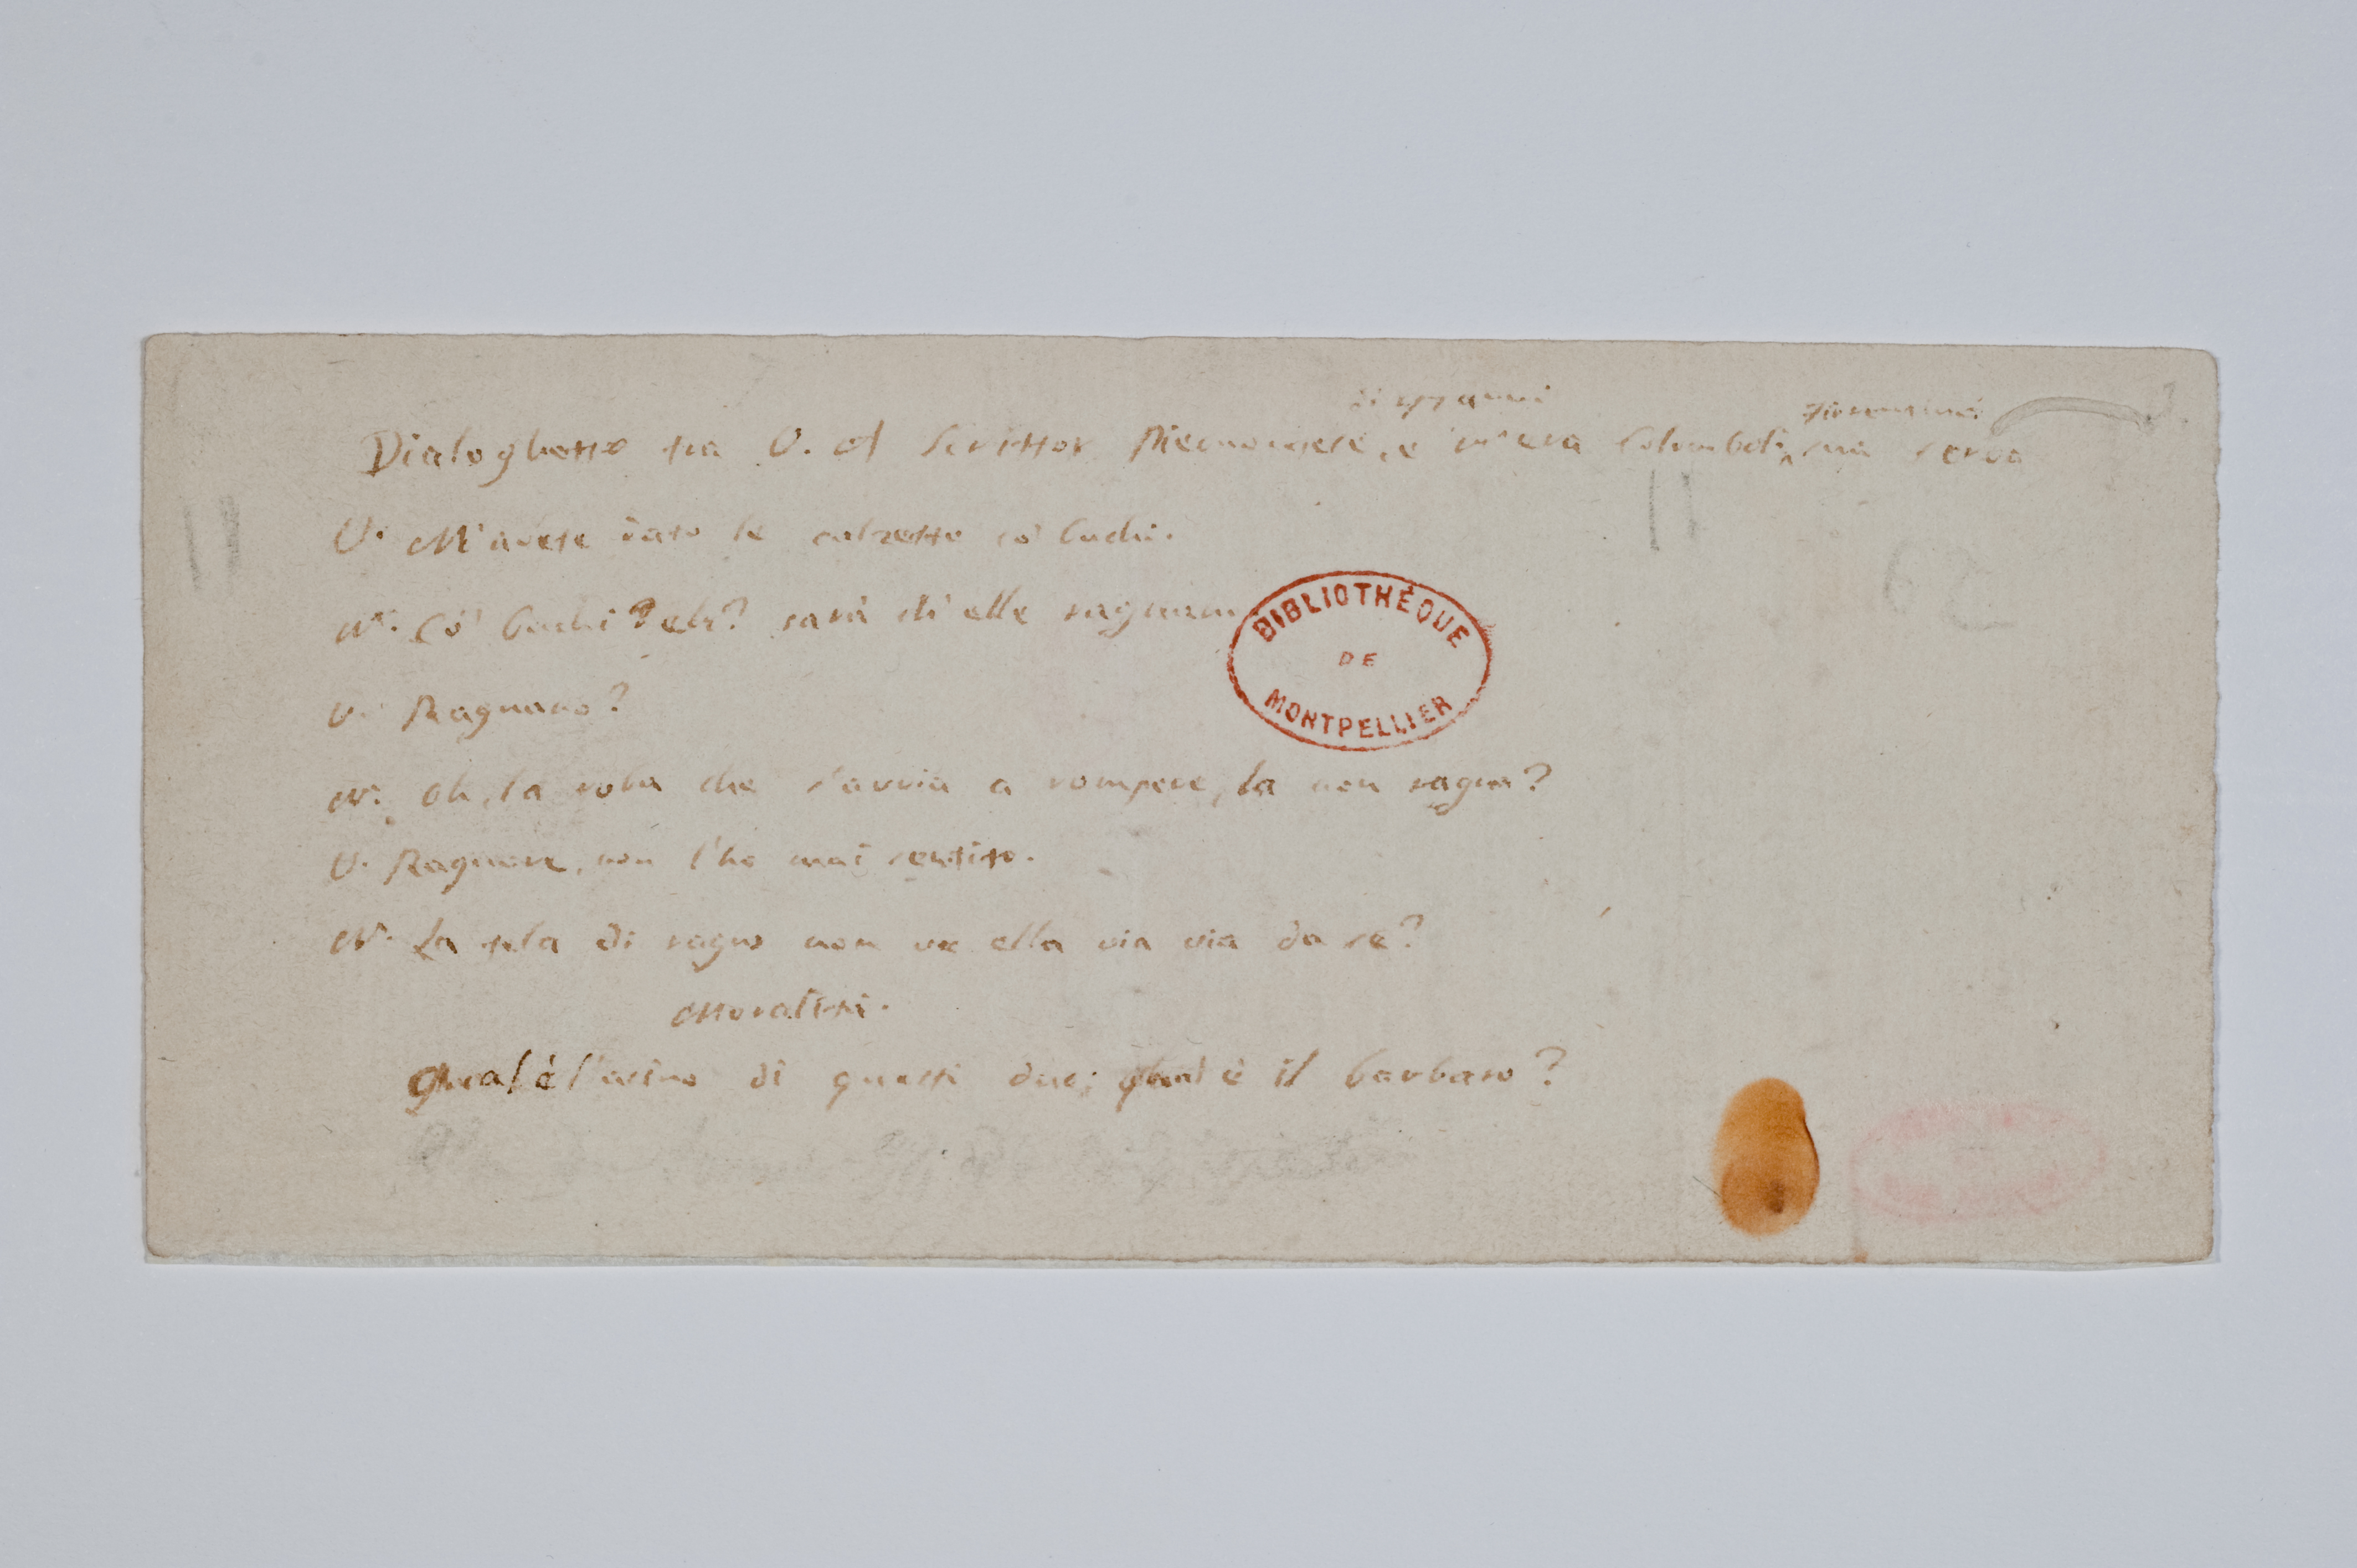 di 47 anni
Fiorentina
Dialoghetto fra V. A Scrittor Piemontese, e N.ª era Colomboli, sua serva
V. M'avete dato le calzette co' buchi.
N.ª Co' buchi? eh? sarà ch'elle ragnano
V. Ragnano?
N.ª Oh, la roba che s'avvia a rompere, la non ragna?
V. Ragnare, non l'ho mai sentito.
N.ª La tela di ragno non va ella via via da se?
Moralità.
Qual è l'asino di questi due; qual è il barbaro?
BIBLIOTHÉQUE
DE
MONTPELLIER